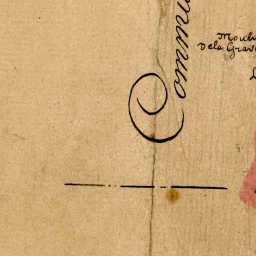 Commu
Moulin
De la Grav